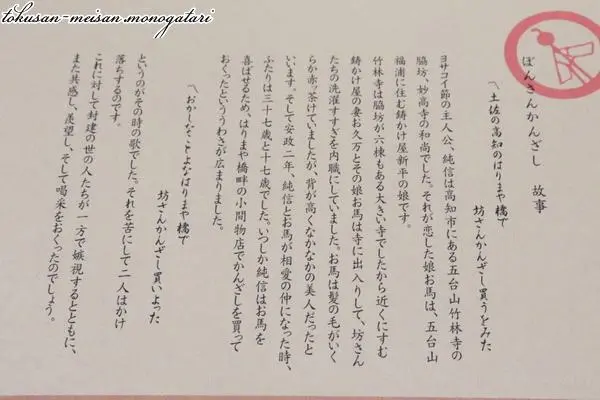 tokusan-meisan.monogatari
ぼんさんかんざし 故事
〽土佐の高知のはりまや橋で
坊さんかんざし買うをみた
ヨサコイ節の主人公、純信は高知市にある五台山竹林寺の
脇坊、妙高寺の和尚でした。それが恋した娘お馬は、五台山
福浦に住む鋳かけ屋新平の娘です。
竹林寺は脇坊が六棟もある大きい寺でしたから近くにすむ
鋳かけ屋の妻お久万とその娘お馬は寺に出入りして、坊さん
たちの洗濯すすぎを内職にしていました。お馬は髪の毛がいく
らか赤ッ茶けていましたが、背が高くなかなかの美人だったと
います。そして安政二年、純信とお馬が相愛の仲になった時、
ふたりは三十七歳と十七歳でした。いつしか純信はお馬を
喜ばせるため、はりまや橋畔の小間物店でかんざしを買って
おくったといううわさが広まりました。
〽おかしなことよなはりまや橋で
坊さんかんざし買いよった
というのがその時の歌でした。それを苦にして二人はかけ
落ちするのです。
これに対して封建の世の人たちが一方で嫉視するとともに、
また共感し、羨望し、そして喝采をおくったのでしょう。